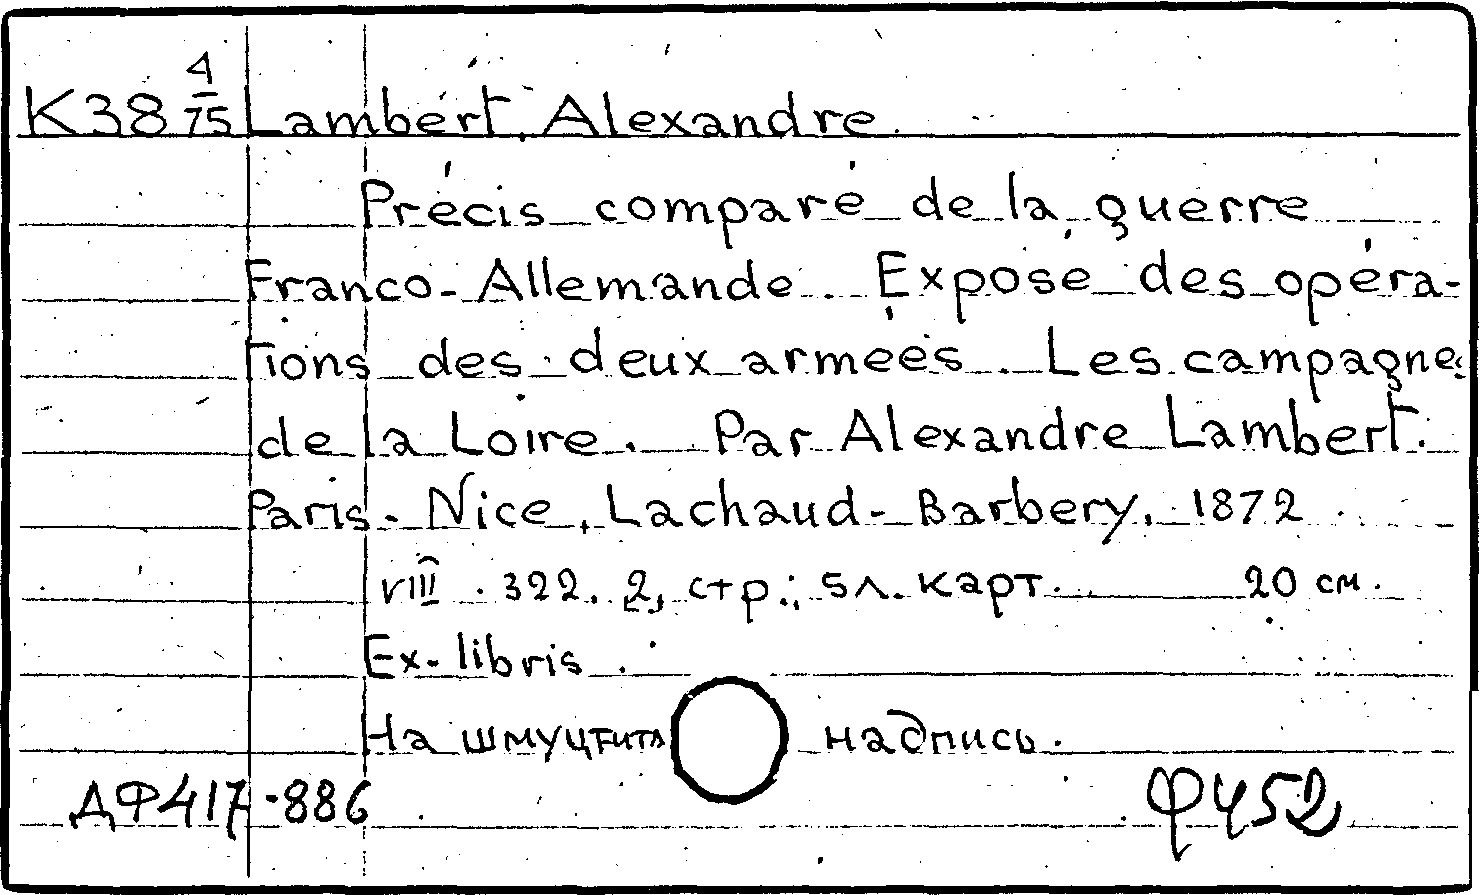 К38 4/75 Lambert, Alexandre.
Précis comparé de la guerre
Franco-Allemande. Exposé des opéra-
tions des deux armées. Les campagnes
de la Loire. Par Alexandre Lambert.
Paris-Nice, Lachaud-Barbery, 1872
VIII. 322. 2, стр.; 5 л. карт. 20 см.
Ex-libris.
На шмуцтит надпись.
ДФ417-886 Ф452